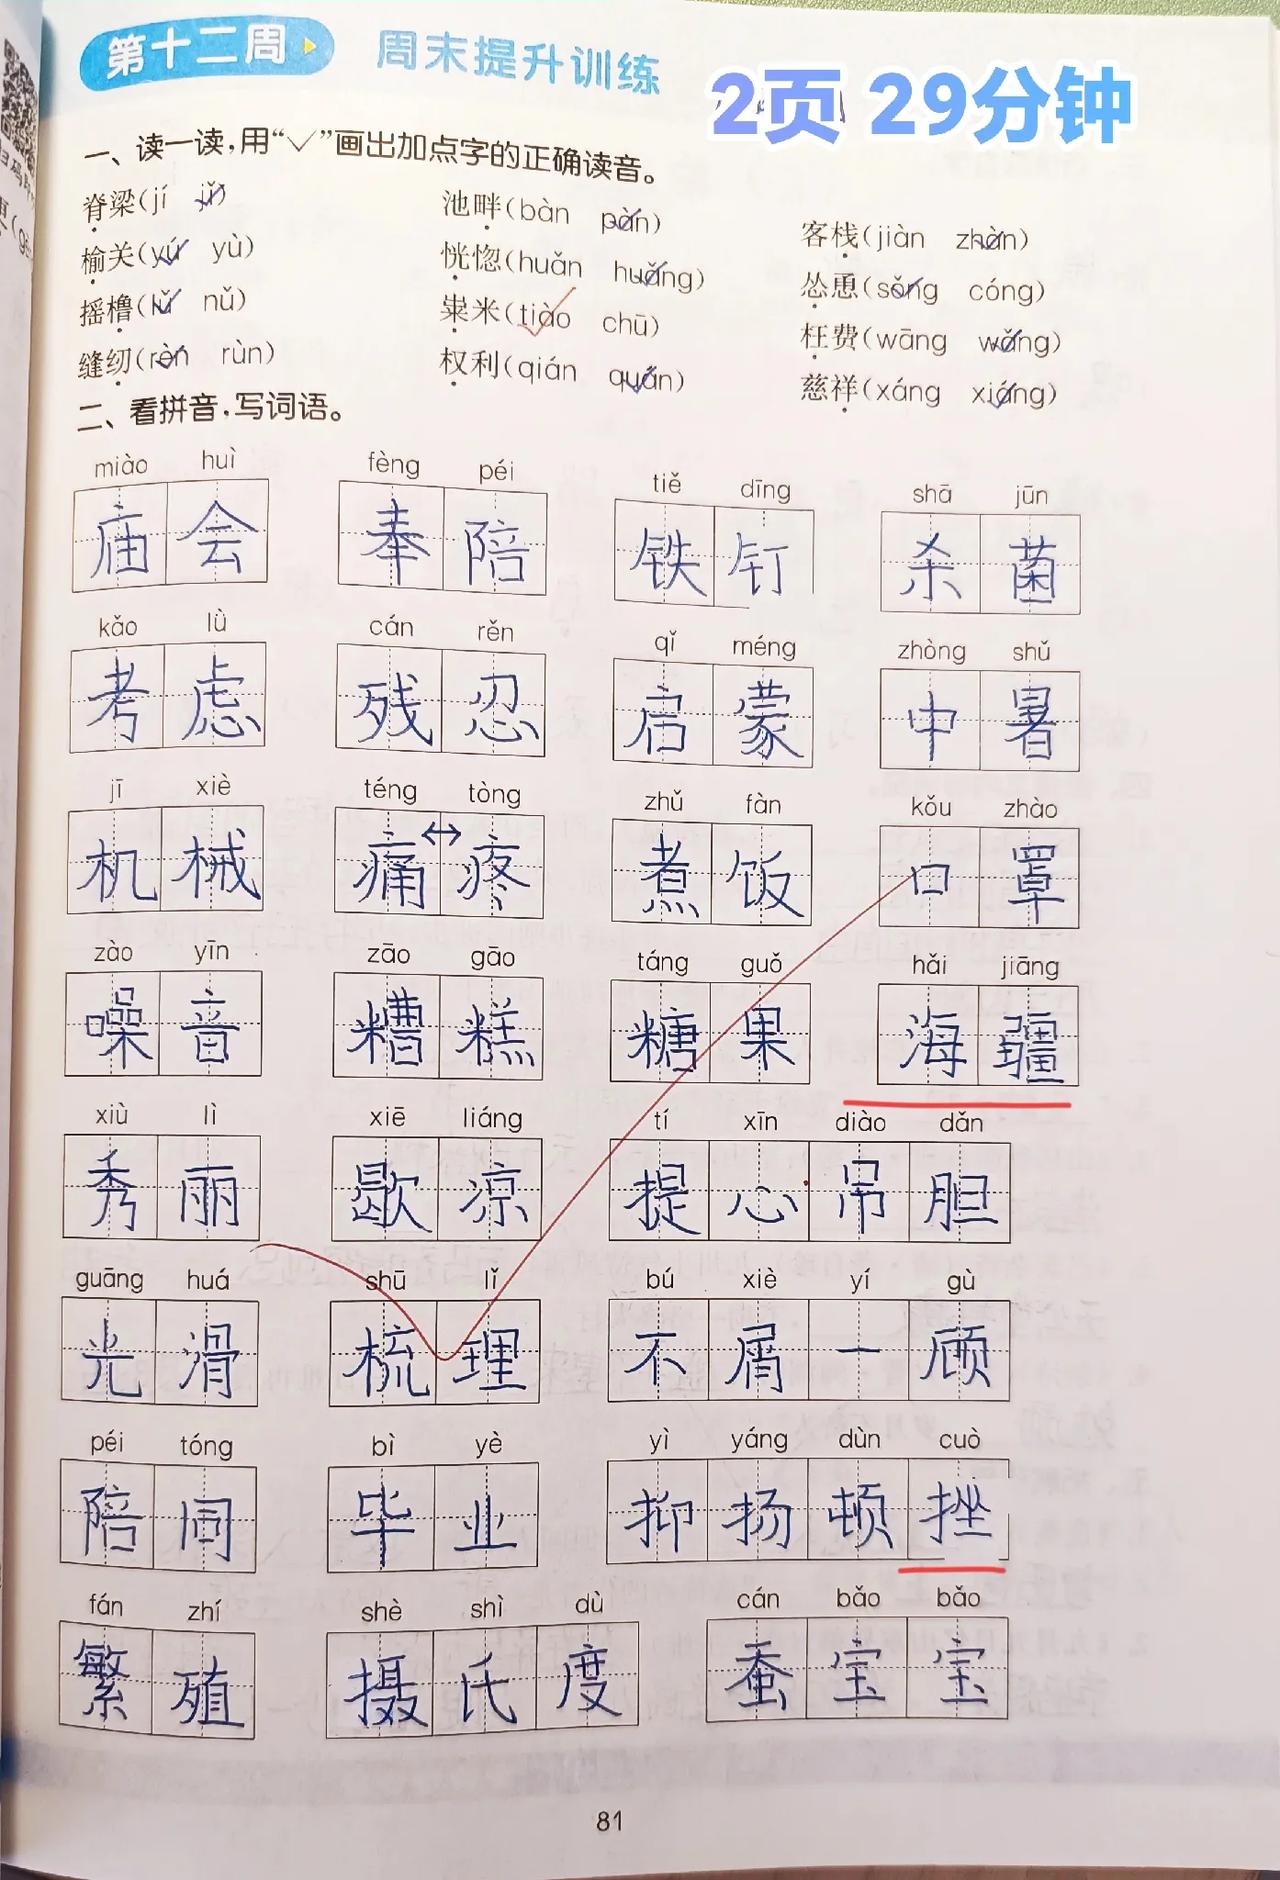 第十二周 周末提升训练
2页 29分钟
一、读一读,用“✓”画出加点字的正确读音。
脊梁(jí jǐ) 池畔(bàn pàn) 客栈(jiàn zhàn)
榆关(yú yù) 恍惚(huǎn huǎng) 怂恿(sǒng cóng)
摇橹(lǔ nǔ) 粜米(tiào chū) 枉费(wāng wǎng)
缝纫(rèn rùn) 权利(qián quán) 慈祥(xáng xiáng)
二、看拼音,写词语。
miào huì fèng péi tiě dīng shā jūn
庙会 奉陪 铁钉 杀菌
kǎo lǜ cán rěn qǐ méng zhòng shǔ
考虑 残忍 启蒙 中暑
jī xiè téng tòng zhǔ fàn kǒu zhào
机械 痛↔疼 煮饭 口罩
zào yīn zāo gāo táng guǒ hǎi jiāng
噪音 糟糕 糖果 海疆
xiù lì xiē liáng tí xīn diào dǎn
秀丽 歇凉 提心吊胆
guāng huá shū lǐ bú xiè yí gù
光滑 梳理 不屑一顾
péi tóng bì yè yì yáng dùn cuò
陪同 毕业 抑扬顿挫
fán zhí shè shì dù cán bǎo bǎo
繁殖 摄氏度 蚕宝宝
81